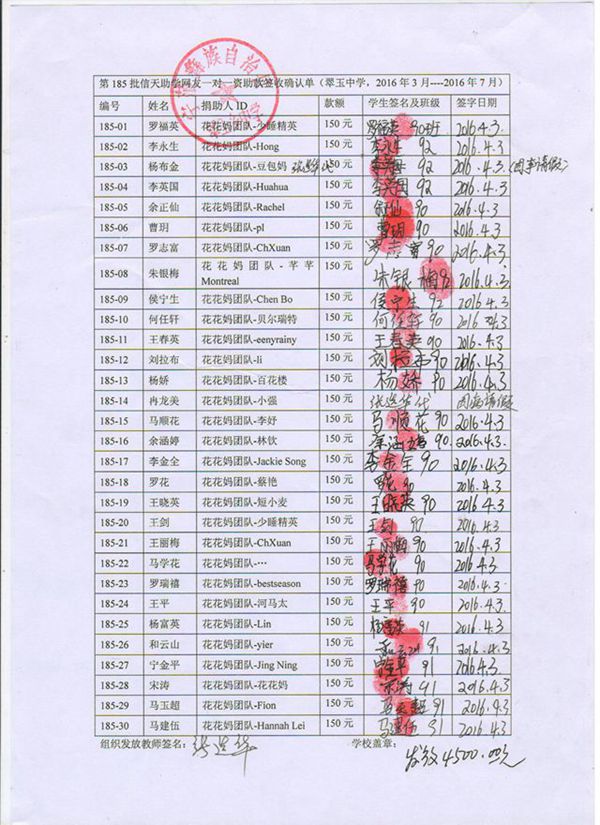 彝族自治
第 185 批信天助学网友一对一资助款签收确认单（翠玉中学，2016 年 3 月----2016 年 7 月）
编号 姓名 捐助人 ID 款额 学生签名及班级 签字日期
185-01 罗福英 花花妈团队-少睡精英 150 元 罗福英 90班 2016.4.3
185-02 李永生 花花妈团队-Hong 150 元 李永生 92 2016.4.3
185-03 杨布金 花花妈团队-豆包妈 150 元 92 2016.4.3
185-04 李英国 花花妈团队-Huahua 150 元 李英国 92 2016.4.3
185-05 余正仙 花花妈团队-Rachel 150 元 90 2016.4.3
185-06 曹玥 花花妈团队-pl 150 元 曹玥 90 2016.4.3
185-07 罗志富 花花妈团队-ChXuan 150 元 罗志富 90 2016.4.3
185-08 朱银梅 花花妈团队-芊芊 150 元 朱银梅 92 2016.4.3
Montreal
185-09 侯宁生 花花妈团队-Chen Bo 150 元 侯宁生 92 2016.4.3
185-10 何任轩 花花妈团队-贝尔瑞特 150 元 何任轩 90 2016.4.3
185-11 王春英 花花妈团队-eenyrainy 150 元 王春英 90 2016.4.3
185-12 刘拉布 花花妈团队-li 150 元 刘拉布 90 2016.4.3
185-13 杨娇 花花妈团队-百花楼 150 元 杨娇 90 2016.4.3
185-14 冉龙美 花花妈团队-小强 150 元 张选华代 因病请假
185-15 马顺花 花花妈团队-李妤 150 元 马顺花 90 2016.4.3
185-16 余涵婷 花花妈团队-林钦 150 元 余涵婷 90 2016.4.3
185-17 李金全 花花妈团队-Jackie Song 150 元 李金全 90 2016.4.3
185-18 罗花 花花妈团队-蔡艳 150 元 罗花 90 2016.4.3
185-19 王晓英 花花妈团队-短小麦 150 元 王晓英 90 2016.4.3
185-20 王剑 花花妈团队-少睡精英 150 元 王剑 90 2016.4.3
185-21 王丽梅 花花妈团队-ChXuan 150 元 王丽梅 90 2016.4.3
185-22 马学花 花花妈团队-… 150 元 马学花 90 2016.4.3
185-23 罗瑞禧 花花妈团队-bestseason 150 元 罗瑞禧 90 2016.4.3
185-24 王平 花花妈团队-河马太 150 元 王平 90 2016.4.3
185-25 杨富英 花花妈团队-Lin 150 元 杨富英 91 2016.4.3
185-26 和云山 花花妈团队-yier 150 元 和云山 91 2016.4.3
185-27 宁金平 花花妈团队-Jing Ning 150 元 宁金平 91 2016.4.3
185-28 宋涛 花花妈团队-花花妈 150 元 宋涛 91 2016.4.3
185-29 马玉超 花花妈团队-Fion 150 元 马玉超 91 2016.4.3
185-30 马建伍 花花妈团队-Hannah Lei 150 元 马建伍 91 2016.4.3
组织发放教师签名： 张选华 学校盖章：
发放4500.00元